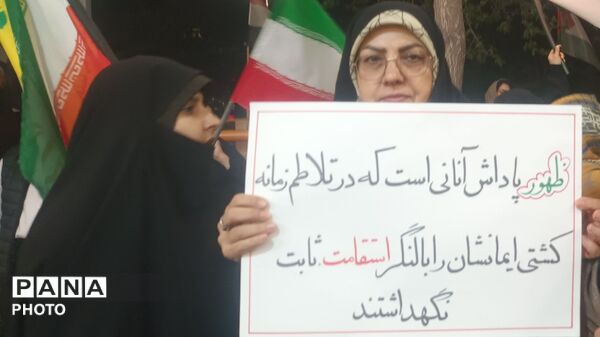 ظهور پاداش آنانی است که در تلاطم زمانه
کشتی ایمانشان را با لنگر استقامت ثابت
نگهداشتند
PANA
PHOTO